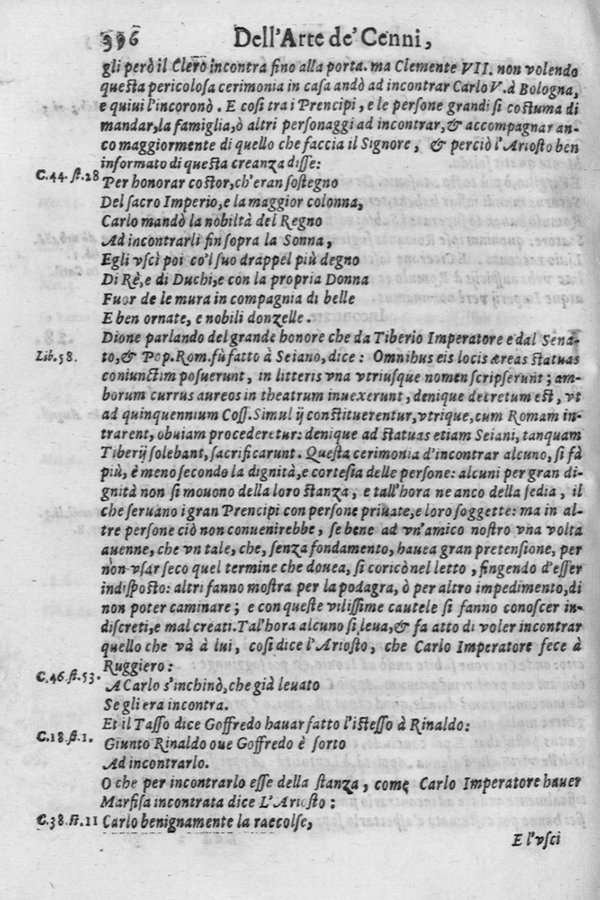 396 Dell'Arte de' Cenni,
gli però il Clero incontra fino alla porta. ma Clemente VII. non volendo
questa pericolosa cerimonia in casa andò ad incontrar Carlo V. à Bologna,
e quiui l'incoronò. E così tra i Prencipi, e le persone grandi si costuma di
mandar, la famiglia, ò altri personaggi ad incontrar, & accompagnar an-
co maggiormente di quello che faccia il Signore, & perciò l'Ariosto ben
informato di questa creanza disse:
C.44. st.28 Per honorar costor, ch'eran sostegno
Del sacro Imperio, e la maggior colonna,
Carlo mandò la nobiltà del Regno
Ad incontrarli fin sopra la Sonna,
Egli vscì poi co'l suo drappel più degno
Di Rè, e di Duchi, e con la propria Donna
Fuor de le mura in compagnia di belle
E ben ornate, e nobili donzelle.
Dione parlando del grande honore che da Tiberio Imperatore e dal Sena-
Lib.58. to, & Pop. Rom. fù fatto à Seiano, dice: Omnibus eis locis æreas statuas
coniunctim posuerunt, in litteris vna vtriusque nomen scripserunt; am-
borum currus aureos in theatrum inuexerunt, denique decretum est, vt
ad quinquennium Coss. Simul ij constituerentur, vtrique, cum Romam in-
trarent, obuiam procederetur: denique ad statuas etiam Seiani, tanquam
Tiberij solebant, sacrificarunt. Questa cerimonia d'incontrar alcuno, si fà
più, è meno secondo la dignità, e cortesia delle persone: alcuni per gran di-
gnità non si mouono della loro stanza, e tall'hora ne anco della sedia, il
che seruano i gran Prencipi con persone priuate, e loro soggette: ma in al-
tre persone ciò non conuenirebbe, se bene ad vn'amico nostro vna volta
auenne, che vn tale, che, senza fondamento, hauea gran pretensione, per
non vsar seco quel termine che douea, si coricò nel letto, fingendo d'esser
indisposto: altri fanno mostra per la podagra, ò per altro impedimento, di
non poter caminare; e con queste vilissime cautele si fanno conoscer in-
discreti, e mal creati. Tal'hora alcuno si leua, & fa atto di voler incontrar
quello che và à lui, così dice l'Ariosto, che Carlo Imperatore fece à
Ruggiero:
C.46. st.53. A Carlo s'inchinò, che già leuato
Se gli era incontra.
Et il Tasso dice Goffredo hauar fatto l'istesso à Rinaldo:
C.18. st.1. Giunto Rinaldo oue Goffredo è sorto
Ad incontrarlo.
O che per incontrarlo esse della stanza, come Carlo Imperatore hauer
Marfisa incontrata dice L'Ariosto:
C.38. st.11 Carlo benignamente la raccolse,
E l'vsci